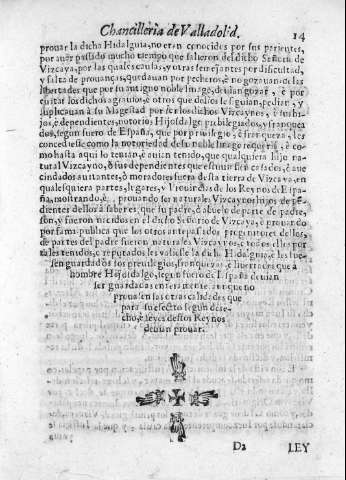 Chancilleria de Valladolid. 14
prouar la dicha Hidalguia, no eran conocidos por sus parientes,
por auer passado mucho tiempo que salieron del dicho Señorio de
Vizcaya, por las quales causas, y otras semejantes por dificultad,
y falta de prouanças, quedauan por pecheros, è no gozauan de las
libertades que por su antiguo noble linage, deuian gozar, è por
euitar los dichos agrauios, è otros que dellos se siguian, pedian, y
suplicauan à su Magestad por ser los dichos Vizcaynos, è sus hijos,
è dependientes, notorios Hijosdalgo, priuilegiados, y franqueados,
segun fuero de España, que por priuilegio, è franqueza, les
concediesse como la notoriedad de su noble linage requeria, è como
hasta aqui lo tenian, è auian tenido, que qualquiera hijo natural
Vizcayno, ò sus dependientes que estuuiessen casados, è auecindados
auitantes, ò moradores fuera desta tierra de Vizcaya, en
qualesquiera partes, lugares, y Prouincias de los Reynos de España,
mostrando, è prouando ser naturales Vizcaynos hijos dependientes
dellos à saber es, que su padre, ò abuelo de parte de padre,
son, y fueron nacidos en el dicho Señorio de Vizcaya, è prouando
por fama publica que los otros antepassados progenitores dellos,
de partes del padre fueron naturales Vizcaynos, è todos ellos por
tales tenidos, è reputados les valiesse la dicha Hidalguia, è les fuessen
guardados los priuilegios, franquezas, è libertades que à
hombre Hijosdalgo, segun fuero de España deuian
ser guardadas enteramente, aunque no
prouassen las otras calidades que
para su efecto segun derecho,
è leyes destos Reynos
deuian prouar.
D2 LEY